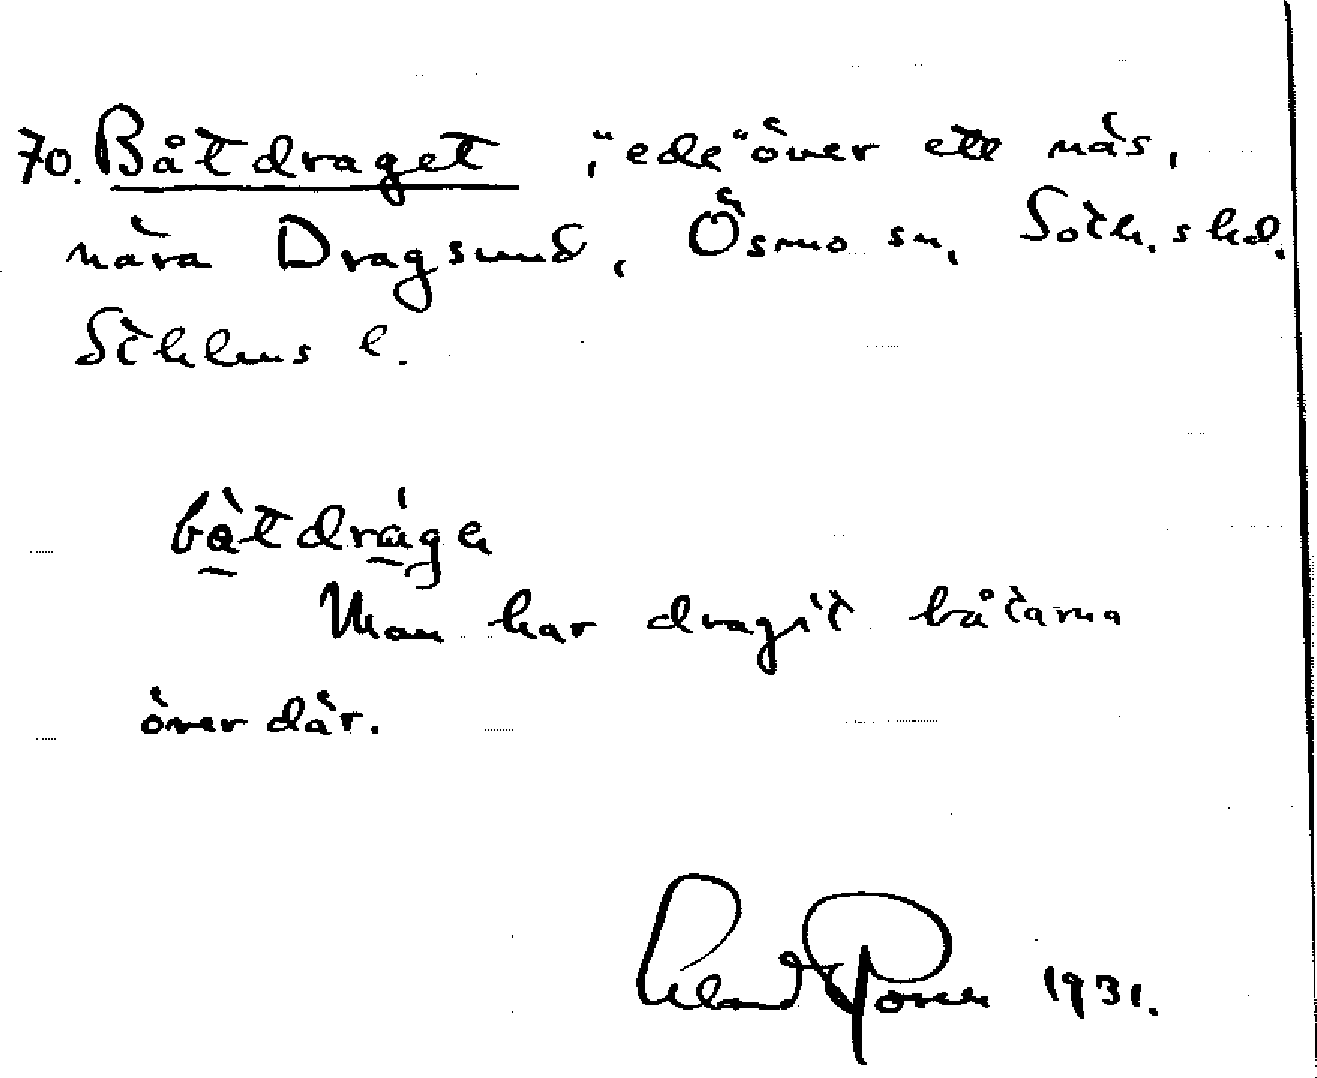 70. Båtdraget, "ede" över ett näs,
nära Dragsund, Ösmo sn, Soth. shd.
Sthlms l.
båtdráge
Man har dragit båtarna
över där.
1931.